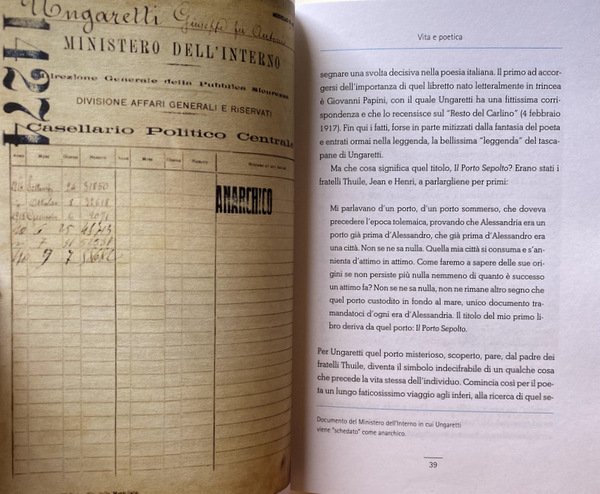 Ungaretti Giuseppe fu Antonio
MINISTERO DELL'INTERNO
Direzione Generale della Pubblica Sicurezza
DIVISIONE AFFARI GENERALI E RISERVATI
Casellario Politico Centrale
14274
ANARCHICO
Vita e poetica
segnare una svolta decisiva nella poesia italiana. Il primo ad accor-
gersi dell'importanza di quel libretto nato letteralmente in trincea
è Giovanni Papini, con il quale Ungaretti ha una fittissima corri-
spondenza e che lo recensisce sul "Resto del Carlino" (4 febbraio
1917). Fin qui i fatti, forse in parte mitizzati dalla fantasia del poeta
e entrati ormai nella leggenda, la bellissima "leggenda" del tasca-
pane di Ungaretti.
Ma che cosa significa quel titolo, Il Porto Sepolto? Erano stati i
fratelli Thuile, Jean e Henri, a parlargliene per primi:
Mi parlavano d'un porto, d'un porto sommerso, che doveva
precedere l'epoca tolemaica, provando che Alessandria era un
porto già prima d'Alessandro, che già prima d'Alessandro era
una città. Non se ne sa nulla. Quella mia città si consuma e s'an-
nienta d'attimo in attimo. Come faremo a sapere delle sue ori-
gini se non persiste più nulla nemmeno di quanto è successo
un attimo fa? Non se ne sa nulla, non ne rimane altro segno che
quel porto custodito in fondo al mare, unico documento tra-
mandatoci d'ogni era d'Alessandria. Il titolo del mio primo li-
bro deriva da quel porto: Il Porto Sepolto.
Per Ungaretti quel porto misterioso, scoperto, pare, dal padre dei
fratelli Thuile, diventa il simbolo indecifrabile di un qualche cosa
che precede la vita stessa dell'individuo. Comincia così per il poe-
ta un lungo faticosissimo viaggio agli inferi, alla ricerca di quel se-
Documento del Ministero dell'Interno in cui Ungaretti
viene "schedato" come anarchico.
39